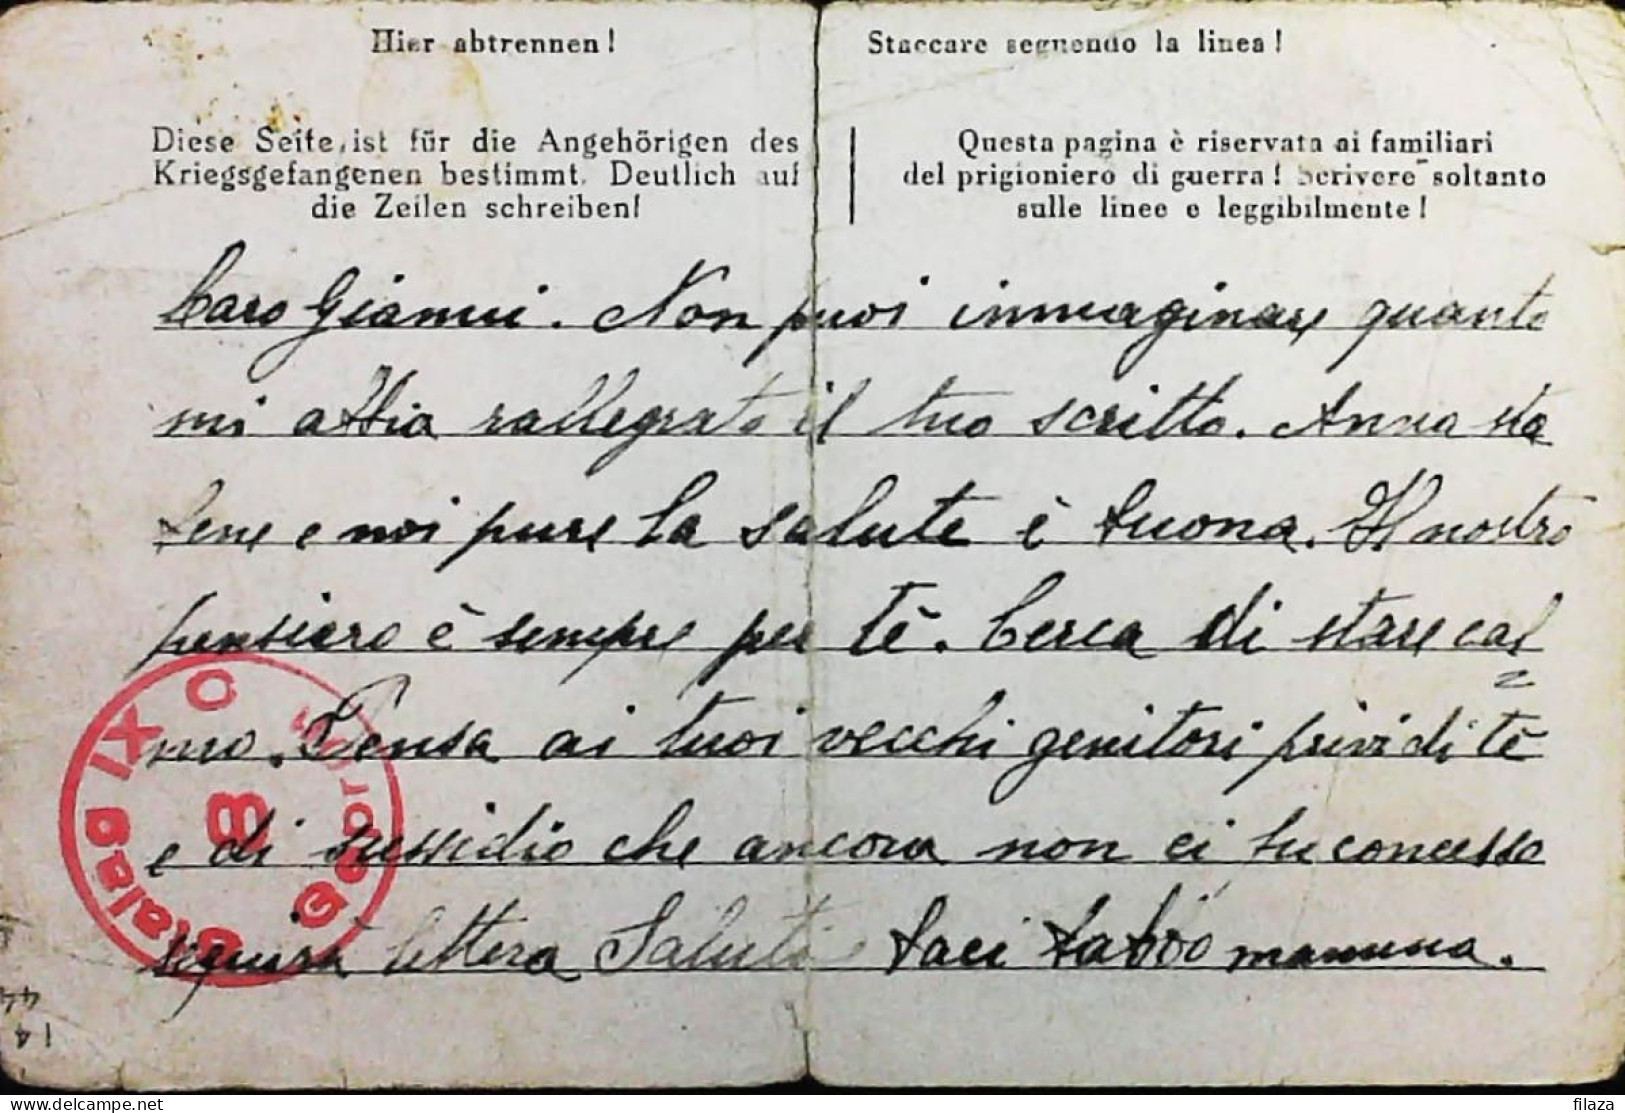 Hier abtrennen!
Staccare seguendo la linea!
Diese Seite ist für die Angehörigen des
Kriegsgefangenen bestimmt. Deutlich auf
die Zeilen schreiben!
Questa pagina è riservata ai familiari
del prigioniero di guerra! Scrivere soltanto
sulle linee e leggibilmente!
Caro Gianni. Non puoi immaginare quanto
mi abbia rallegrato il tuo scritto. Anna sta
bene e noi pure la salute è buona. Il nostro
pensiero è sempre per tè. Cerca di stare cal
=
mo. Pensa ai tuoi vecchi genitori privi di tè
e di sussidio che ancora non ci fu concesso
seguirà lettera Saluti baci babbo mamma.
Stalag IX C
8
Geprüft
44
14
filaza
delcampe.net